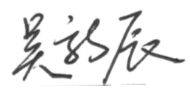 吴新辰